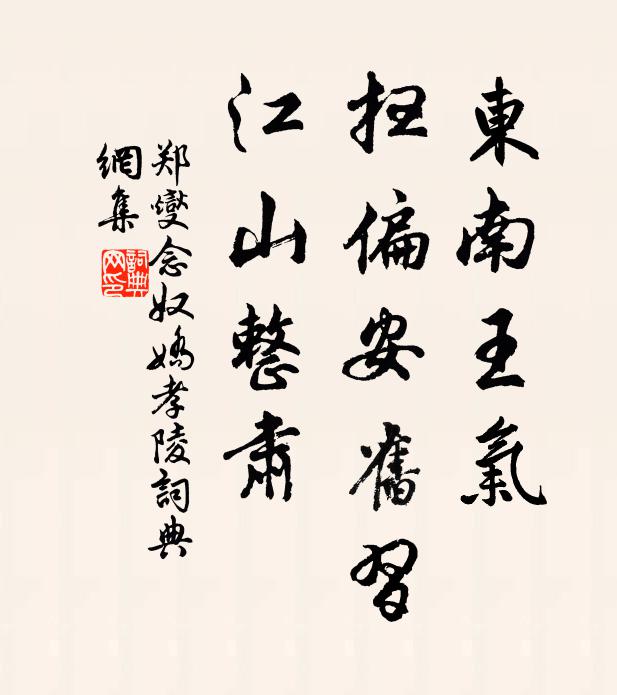 東南王氣
扫偏安舊習
江山整肅
郑燮念奴嬌孝陵詞典
網集
詞典网印